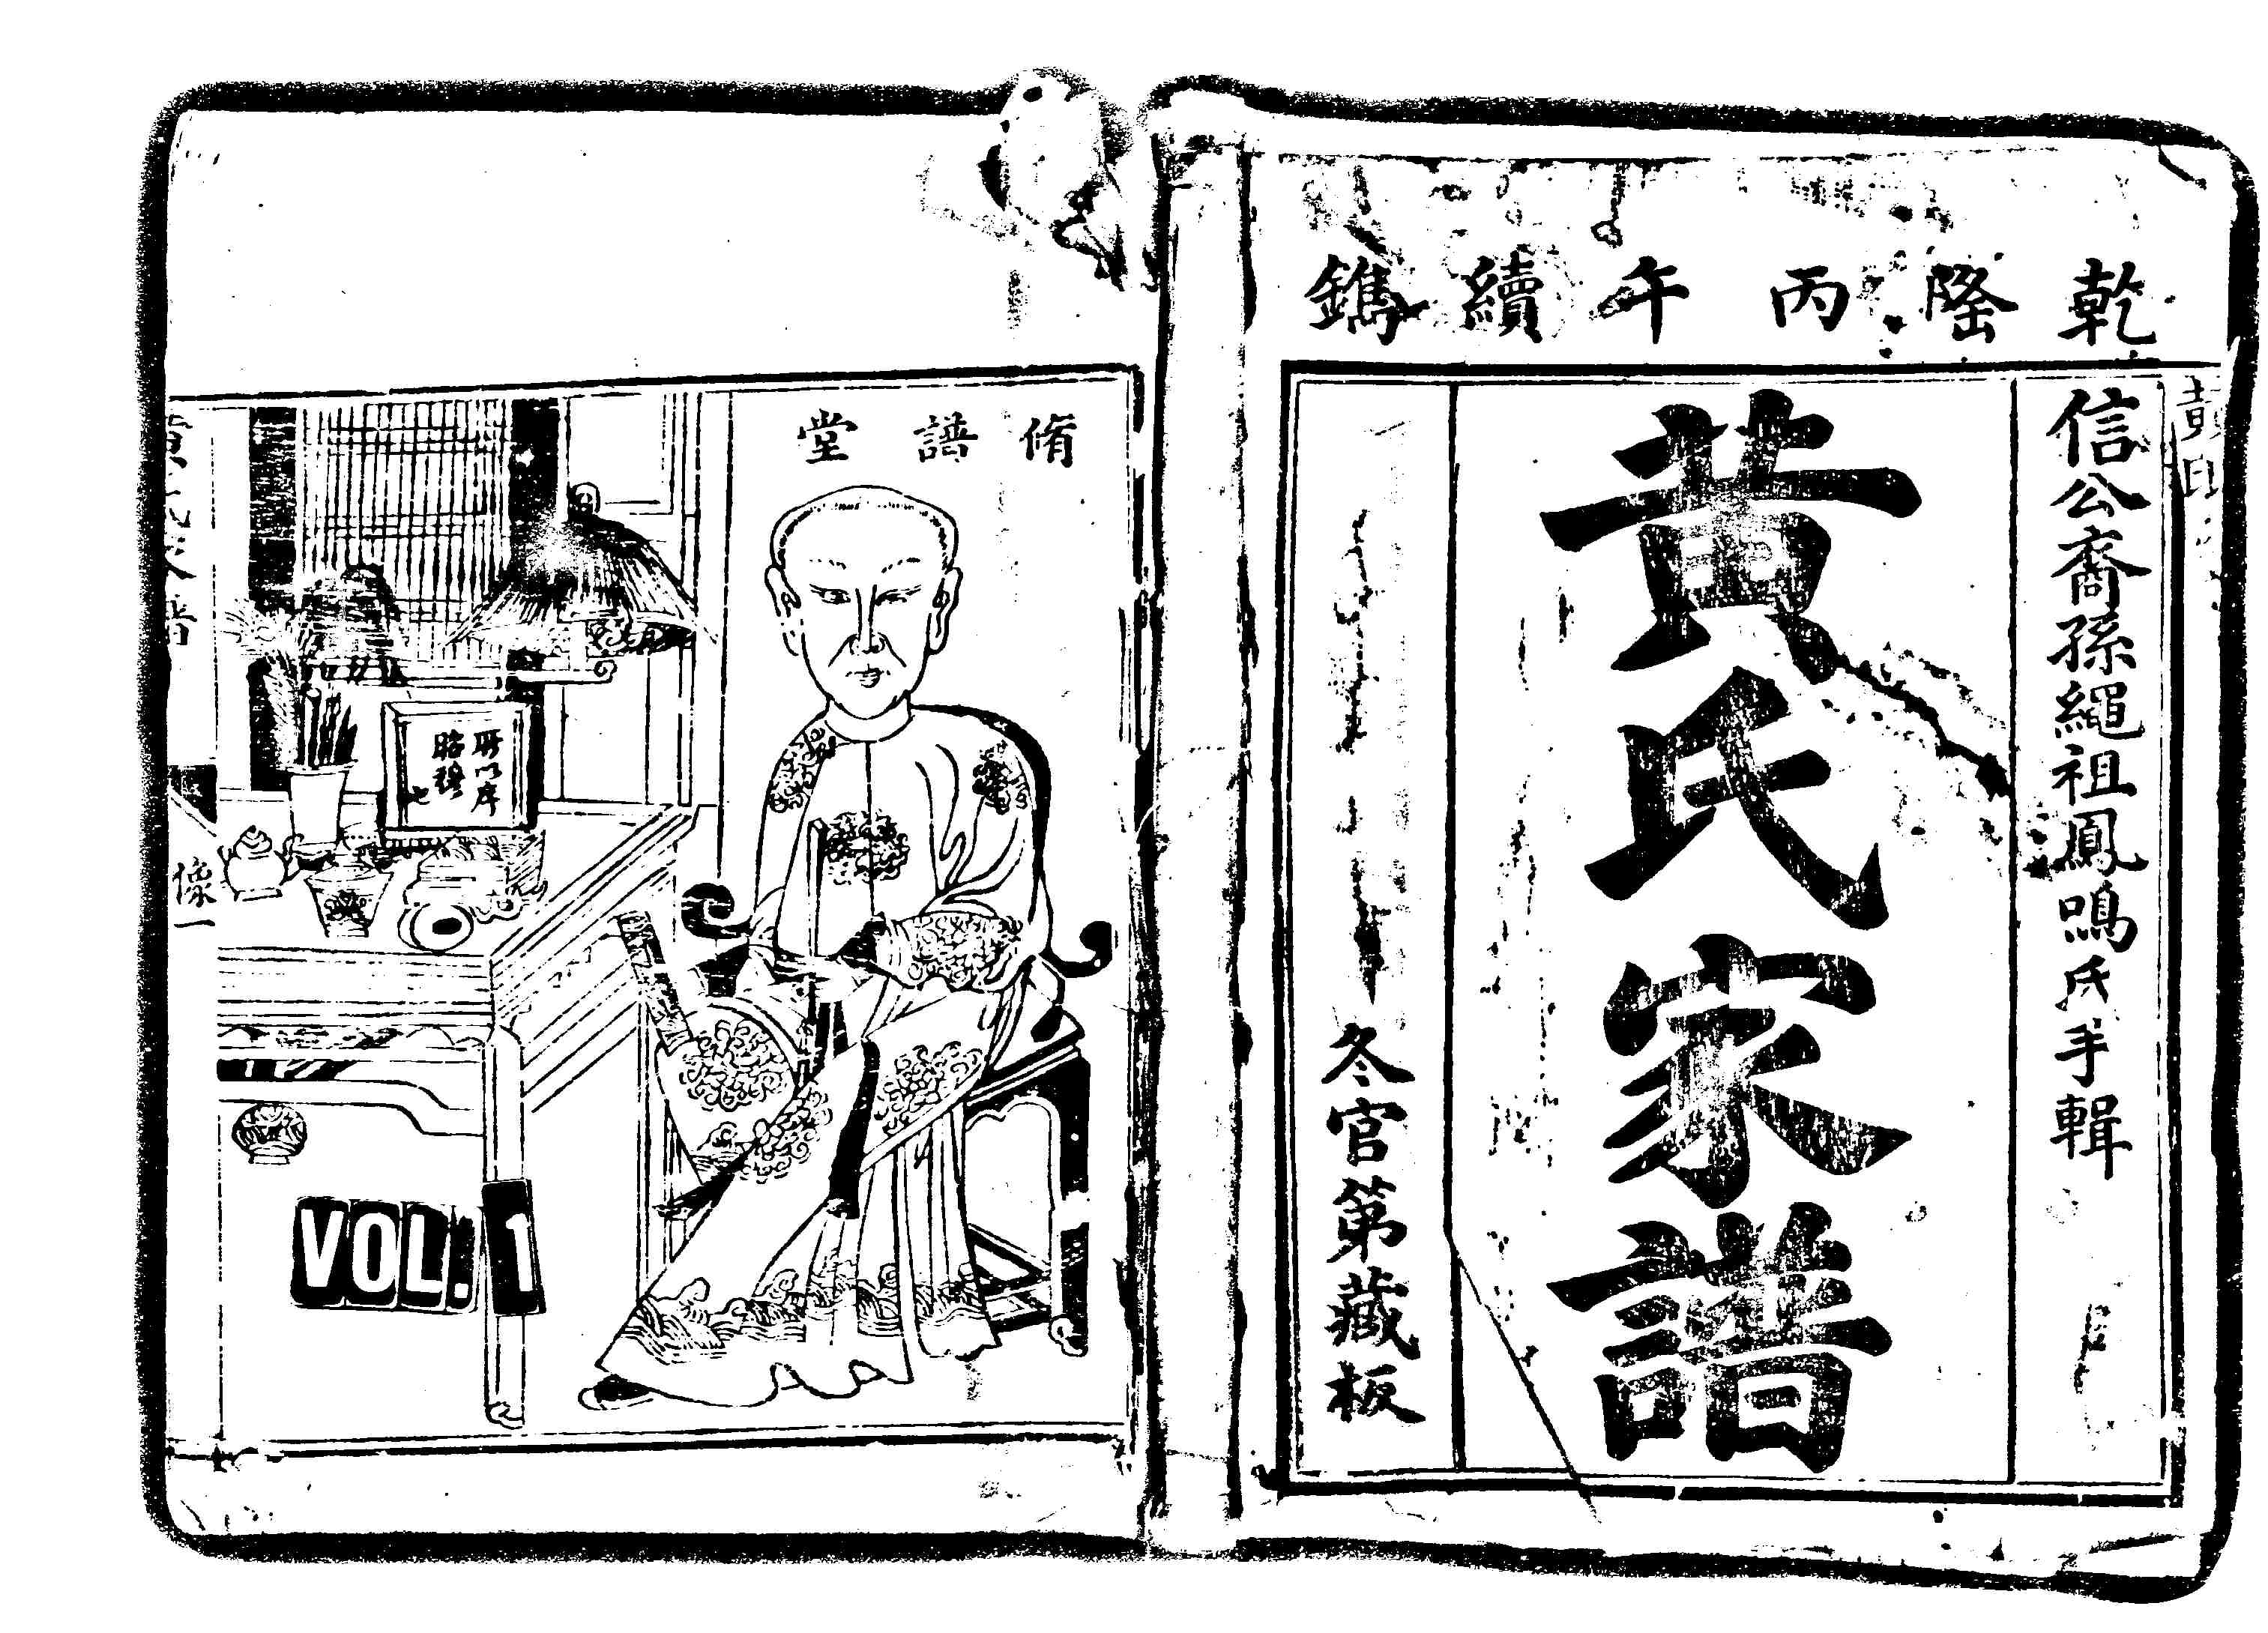 乾隆丙午續鐫
信公裔孫繩祖鳳鳴氏手輯
黃氏家譜
冬官第藏板
脩譜堂
所以序
昭穆
也
像一
VOL. 1